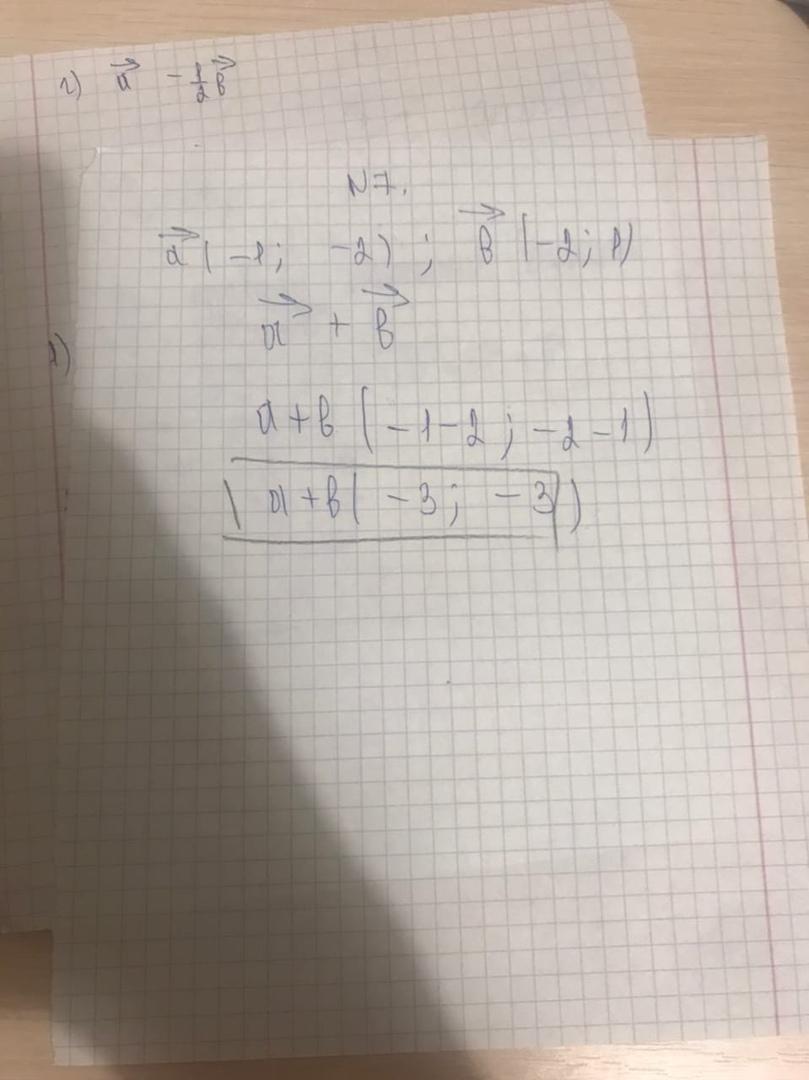 2) a⃗ - 1/2 b⃗
N7.
a⃗ (-1; -2) ; b⃗ (-2; 1)
a⃗ + b⃗
a+b (-1-2; -2-1)
a+b( -3; -3)